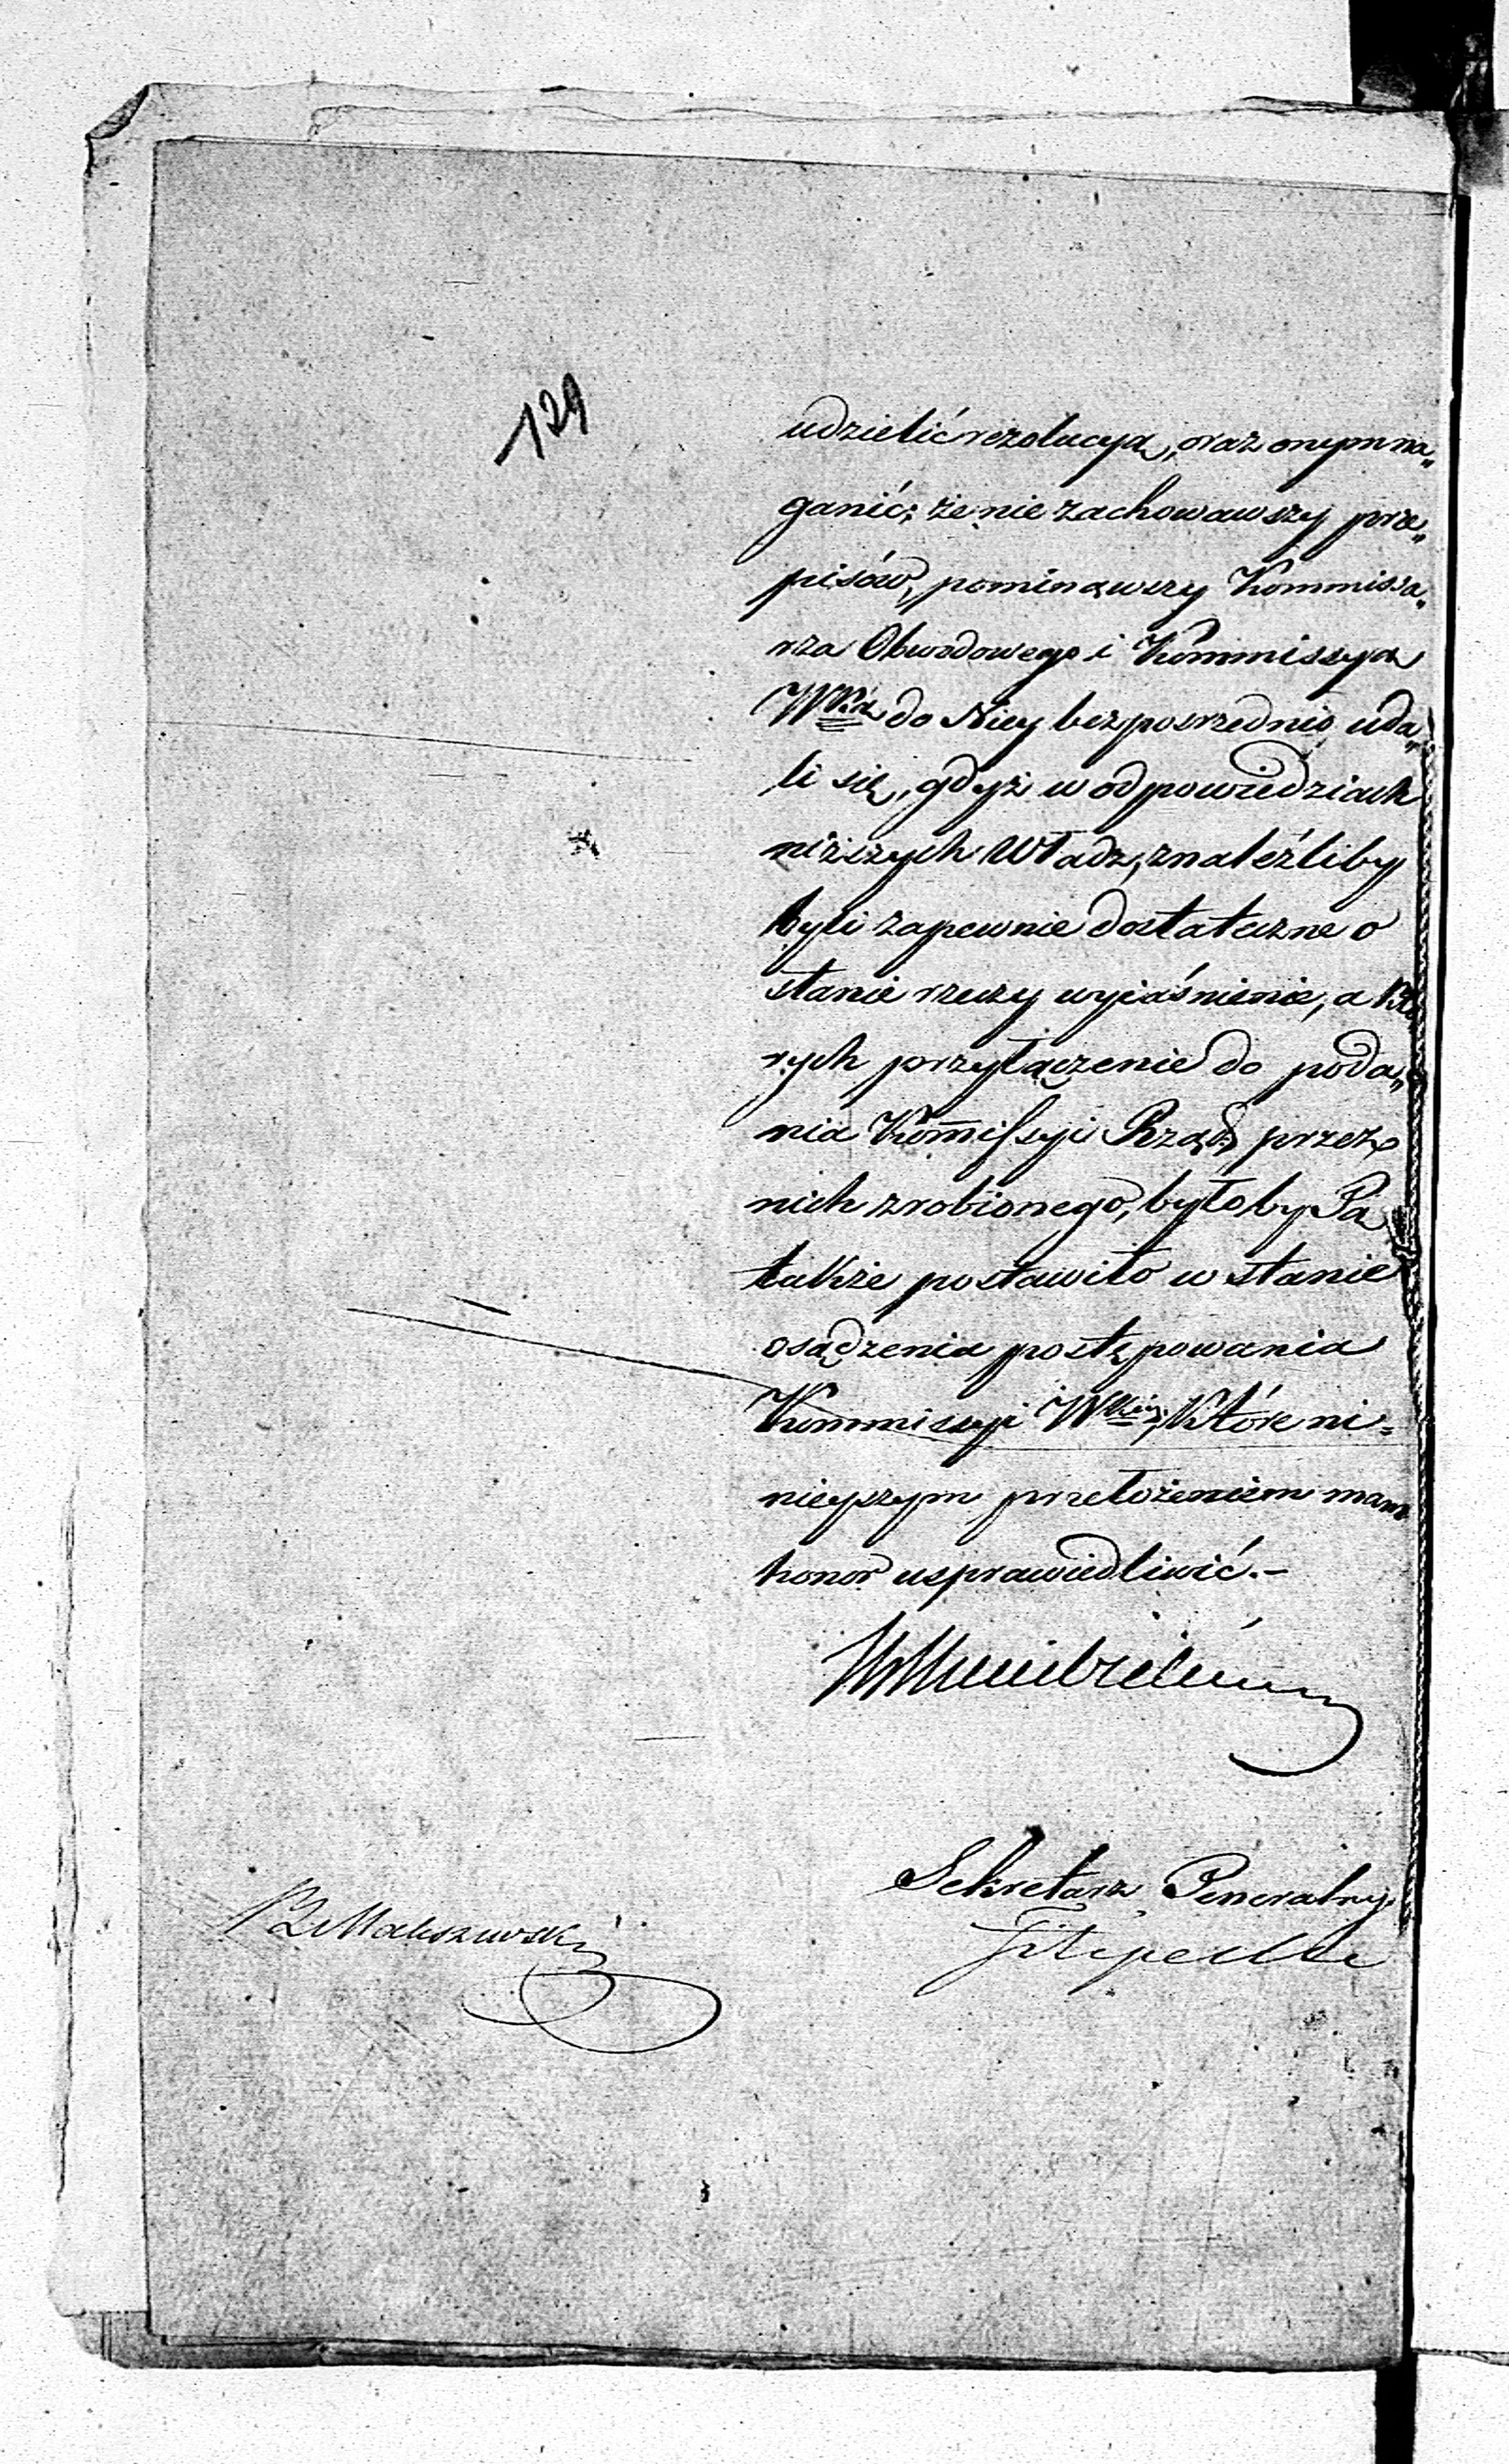 129
udzielić rezolucyą, oraz onym na„
ganić; że nie zachowawszy prze„
pisów, pominąwszy Kommissa„
rza Obwodowego i Kommissyą
Wdzką do Niey bezpośrednio uda„
li się, gdyż w odpowiedziach
niższych Władz, znaleźliby
byli zapewnie dostateczne o
stanie rzeczy wyiaśnienie, a któ
rych przyłączenie do poda„
nia Kom̄issyi Rząd: przez
nich zrobionego, byłoby Ją
także postawiło w stanie
osądzenia postępowania
Kommissyi Wdzkiey, które ni„
nieyszym przełożeniem mam
honor usprawiedliwić.–
Sekretarz Generalny
Filipecki